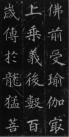 佛前受瑜伽嚴
上乘義後數百
歲傳於龍猛菩